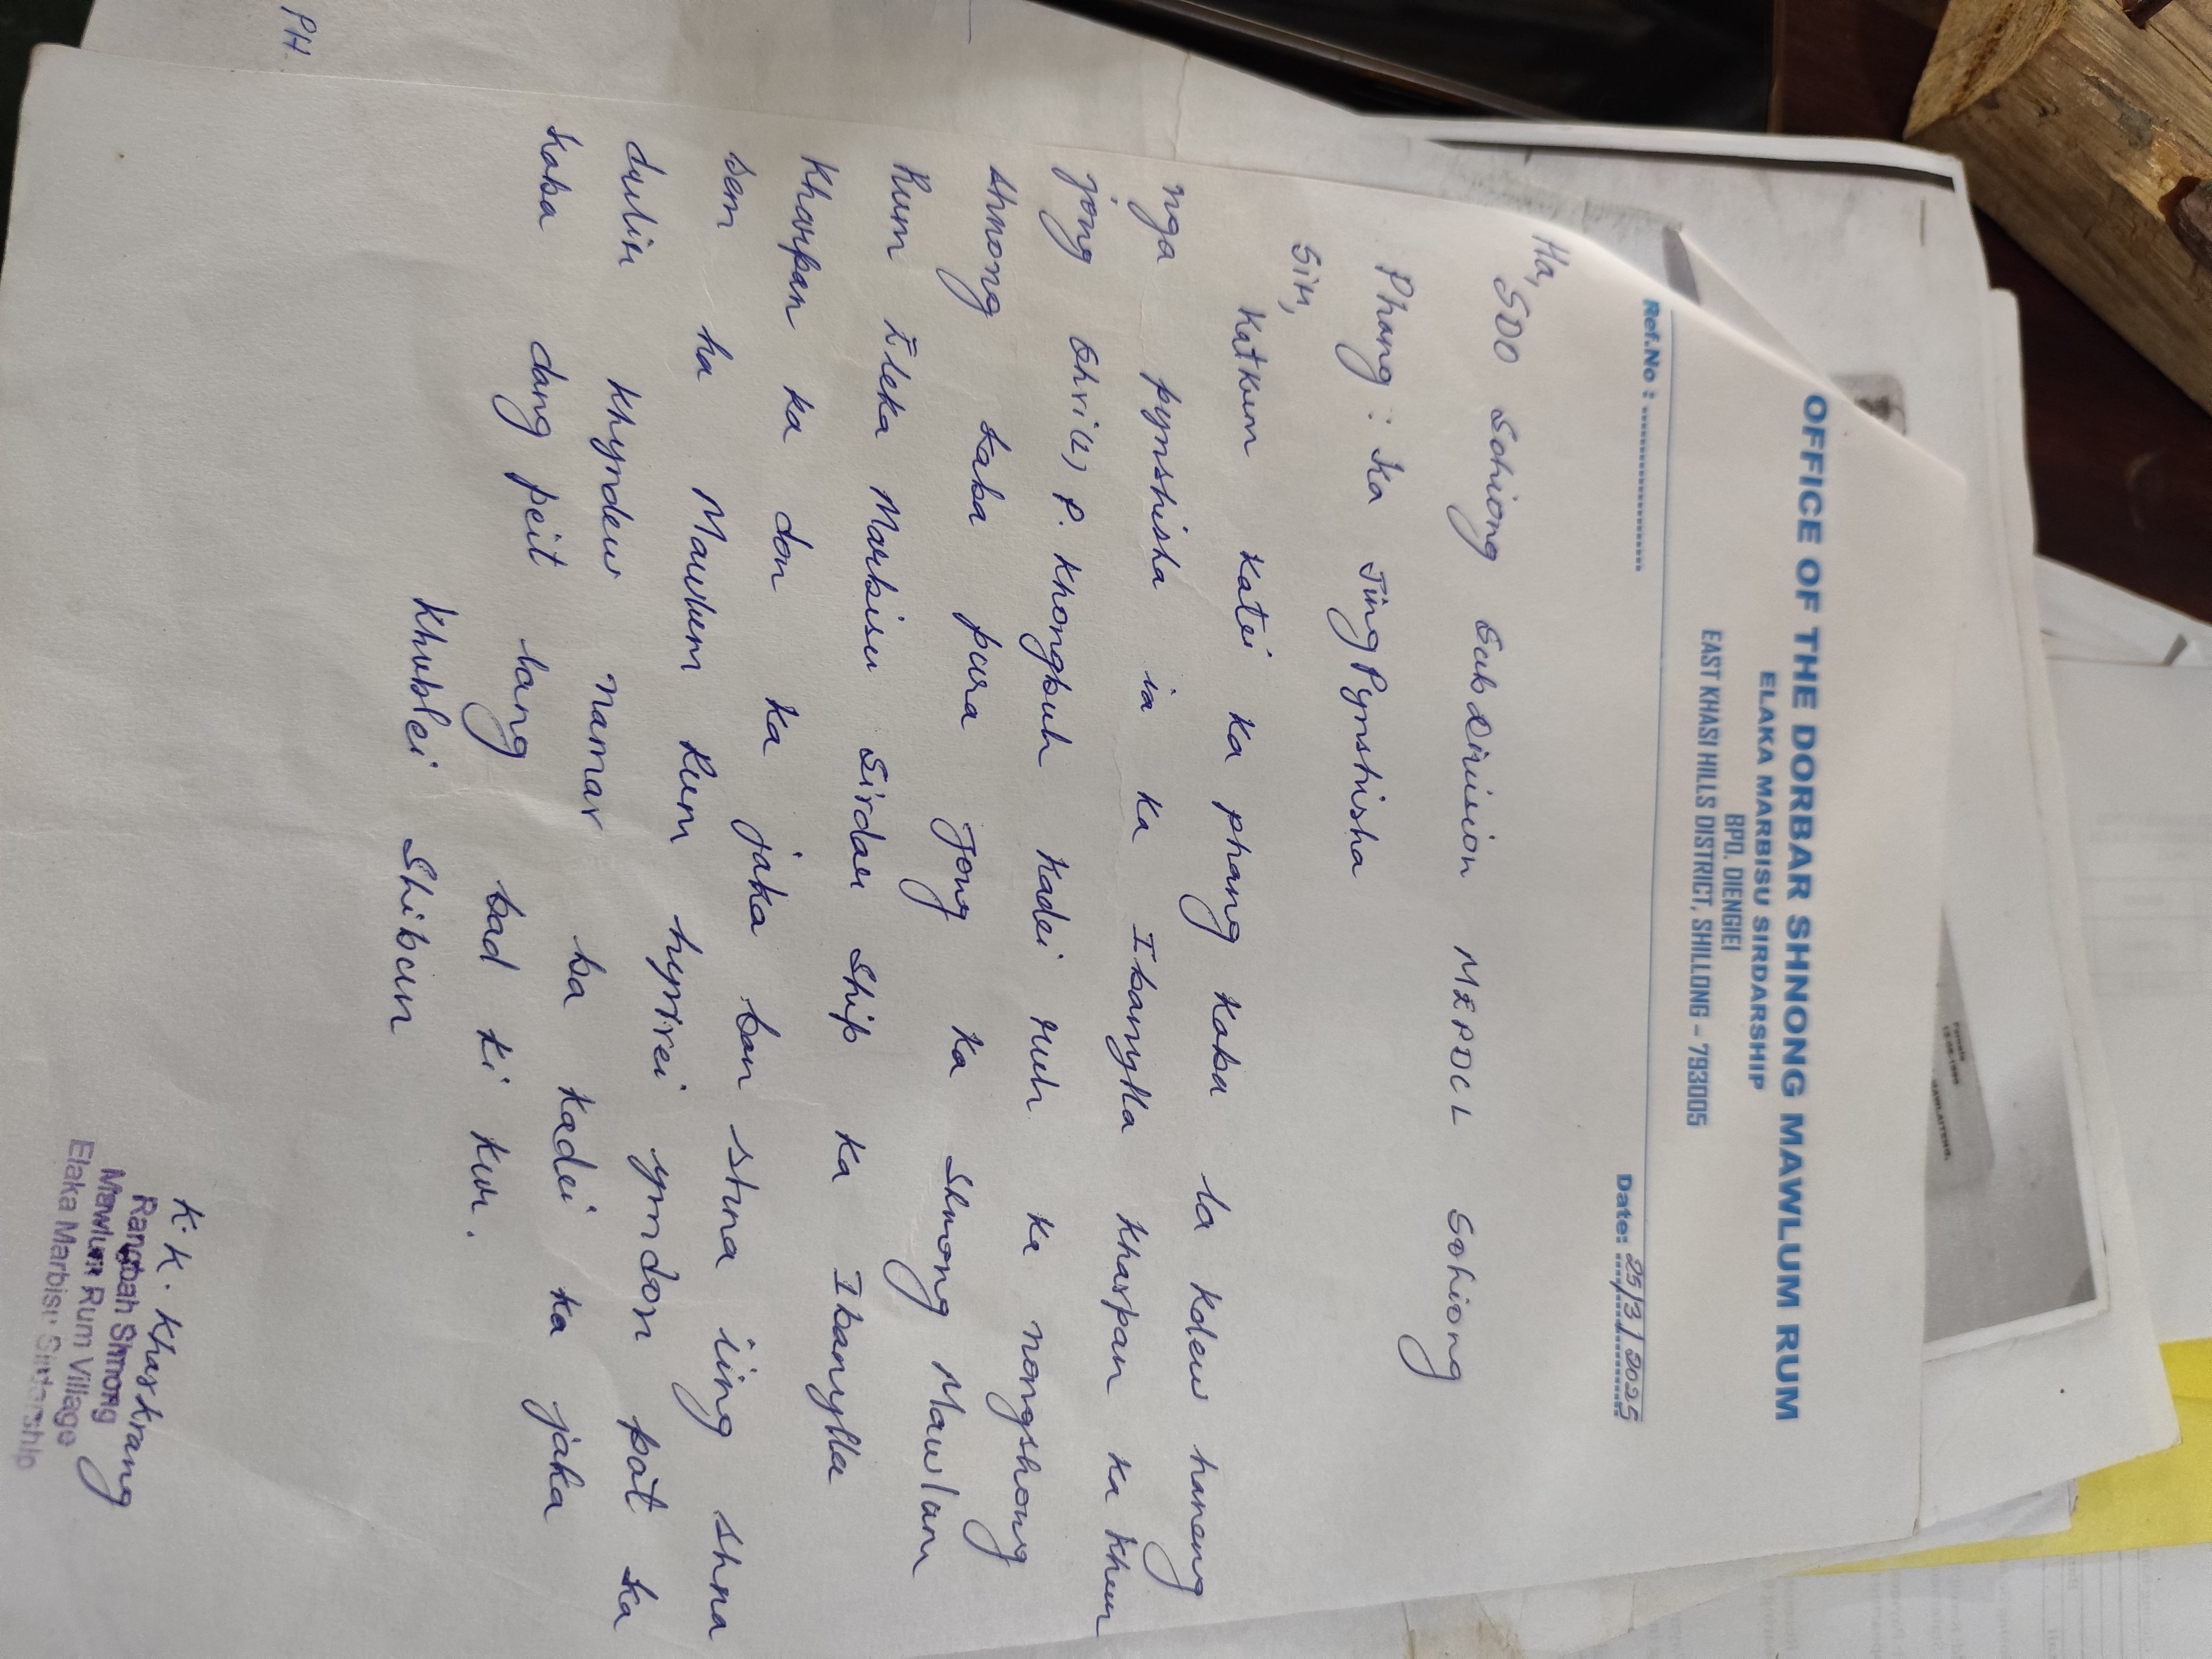 OFFICE OF THE DORBAR SHNONG MAWLUM RUM
ELAKA MARBISU SIRDARSHIP
BPO. DIENGIEI
EAST KHASI HILLS DISTRICT, SHILLONG - 793005
Ref.No : ........................ Date: 25/3/2025
Ha,
SDO Sohiong Sub Division MEPDCL Sohiong
Phang : Ka JingPynshisha
Sir,
Katkum Katei ka phang kaba la kdew haneng
nga pynshisha ia ka Ibanylla Kharpan ka Khun
jong Shri(L) P. Khongbuh Kadei ruh ka nongshong
shnong kaba pura jong ka Shnong Mawlum
Rum Eleka Marbisu Sirdar Ship ka Ibanylla
Kharpan ka don ka jaka ban shna iing shna
sem ha Mawlum Rum hynrei ymdon pat ka
dulir khyndew namar ba kadei ka jaka
kaba dang peit lang bad ki kur.
Khublei Shibun
K.K. Kharkrang
Rangbah Shnong
Mawlum Rum Village
Elaka Marbisu Sirdarship
PH.